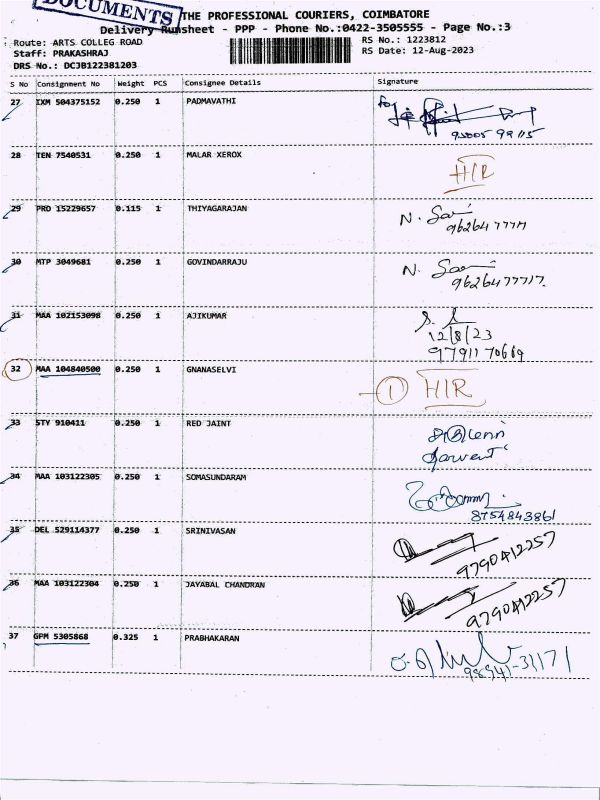 DOCUMENTS
THE PROFESSIONAL COURIERS, COIMBATORE
Delivery Runsheet - PPP - Phone No.:0422-3505555 - Page No.:3
Route: ARTS COLLEG ROAD
RS No.: 1223812
Staff: PRAKASHRAJ
RS Date: 12-Aug-2023
DRS No.: DCJB122381203
S No Consignment No Weight PCS Consignee Details Signature
27 IXM 504375152 0.250 1 PADMAVATHI
28 TEN 7540531 0.250 1 MALAR XEROX
H/R
29 PRO 15229657 0.115 1 THIYAGARAJAN
N.
30 MTP 3049681 0.250 1 GOVINDARRAJU
N.
9626477717.
31 MAA 102153098 0.250 1 AJIKUMAR
12/8/23
9791170669
32 MAA 104840500 0.250 1 GNANASELVI
1 H/R
33 STY 910411 0.250 1 RED JAINT
34 MAA 103122305 0.250 1 SOMASUNDARAM
8754843861
35 DEL 529114377 0.250 1 SRINIVASAN
9790412257
36 MAA 103122304 0.250 1 JAYABAL CHANDRAN
9790412257
37 GPM 5305868 0.325 1 PRABHAKARAN
98941-31171